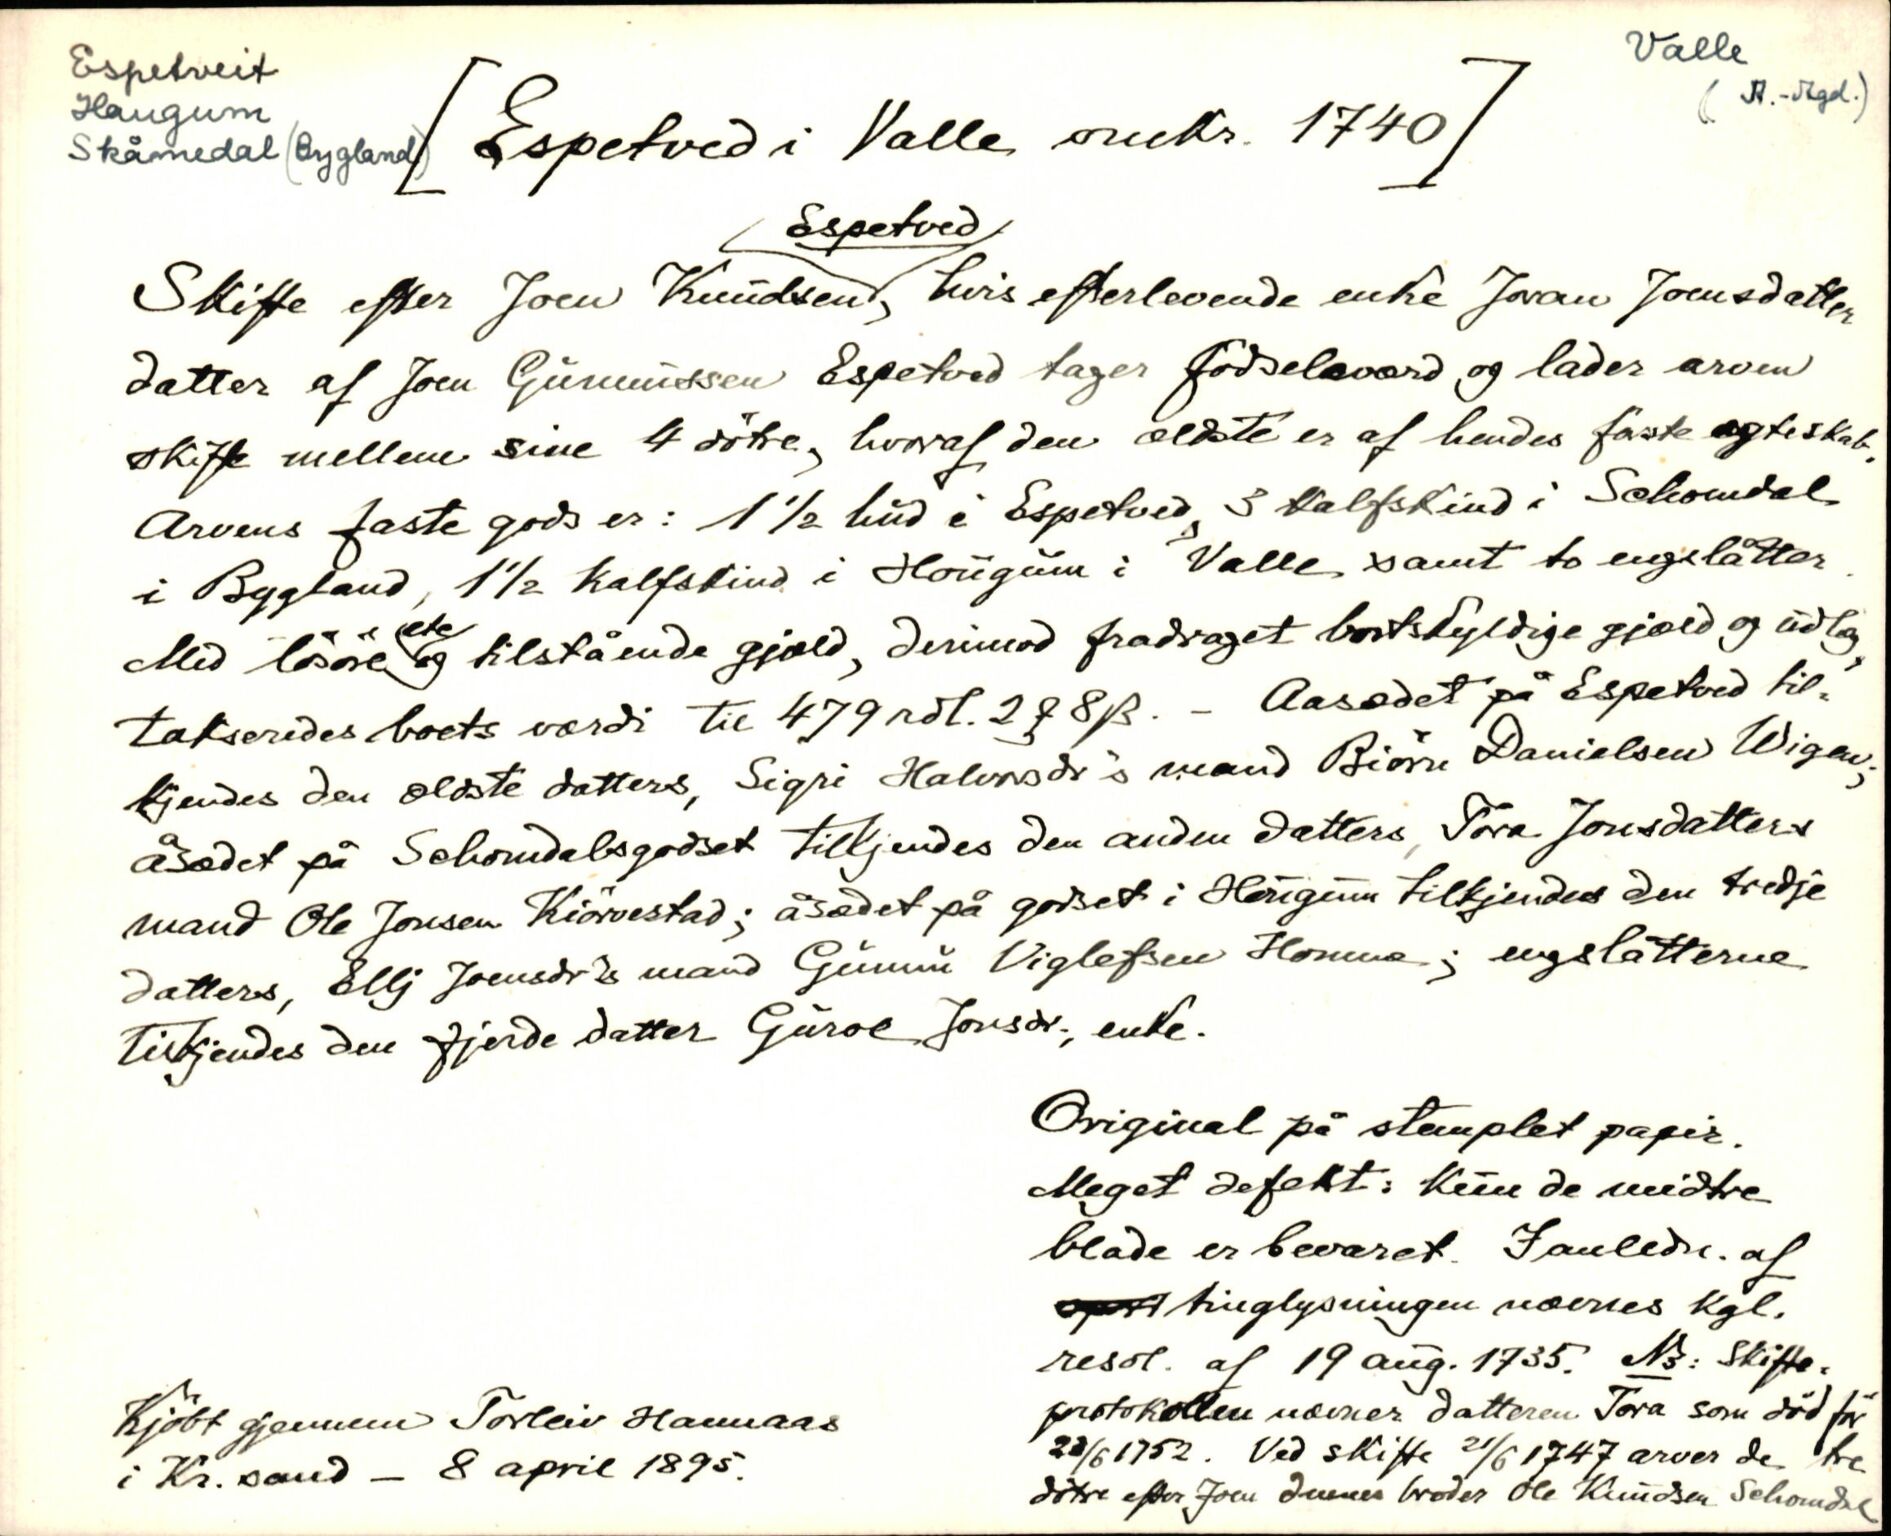 Espetveit
Haugum
Skåmedal (Bygland)
Valle
(A.-Agd.)
[Espetved i Valle omkr. 1740]
Espetved
Skifte efter Joen Knudsen, hvis efterlevende enke Joran Joensdatter
datter af Joen Gunnussen Espetved tager fødselsværd og lader arven
skifte mellem sine 4 døtre, hvoraf den ældste er af hendes første ægteskab.
Arvens faste gods er: 1 1/2 hud i Espetved, 3 kalfskind i Schomdal
i Bygland, 1 1/2 kalfskind i Hougum i Valle samt to engslåtter.
Med løsøre etc og tilstående gjæld, derimod fradraget bortskyldige gjæld og udlæg,
takseredes boets værdi til 479 rdl. 2 ₰ 8 β. - Aasædet på Espetved til-
kjendes den ældste datters, Sigri Halvorsdr's mand Biørn Danielsen Wigen;
åsædet på Schomdalsgodset tilkjendes den anden datters, Tora Jonsdatters
mand Ole Jonsen Kiørvestad; åsædet på godset i Hougum tilkjendes den tredje
datters, Ellj Joensdr's mand Gunnu Viglefsen Homme; engslåtterne
tilkjendes den fjerde datter Guroe Jonsdr., enke.
Original på stemplet papir.
Meget defekt: kun de midtre
blade er bevaret. I anledn. af
tinglysningen nævnes kgl.
resol. af 19 aug. 1735. NB: Skifte-
protokollen nævner datteren Tora som død før
28/6 1752. Ved skifte 21/6 1747 arver de tre
døtre efter Joen dennes broder Ole Knudsen Schomdal
Kjøbt gjennem Torleiv Hannaas
i Kr.sand - 8 april 1895.